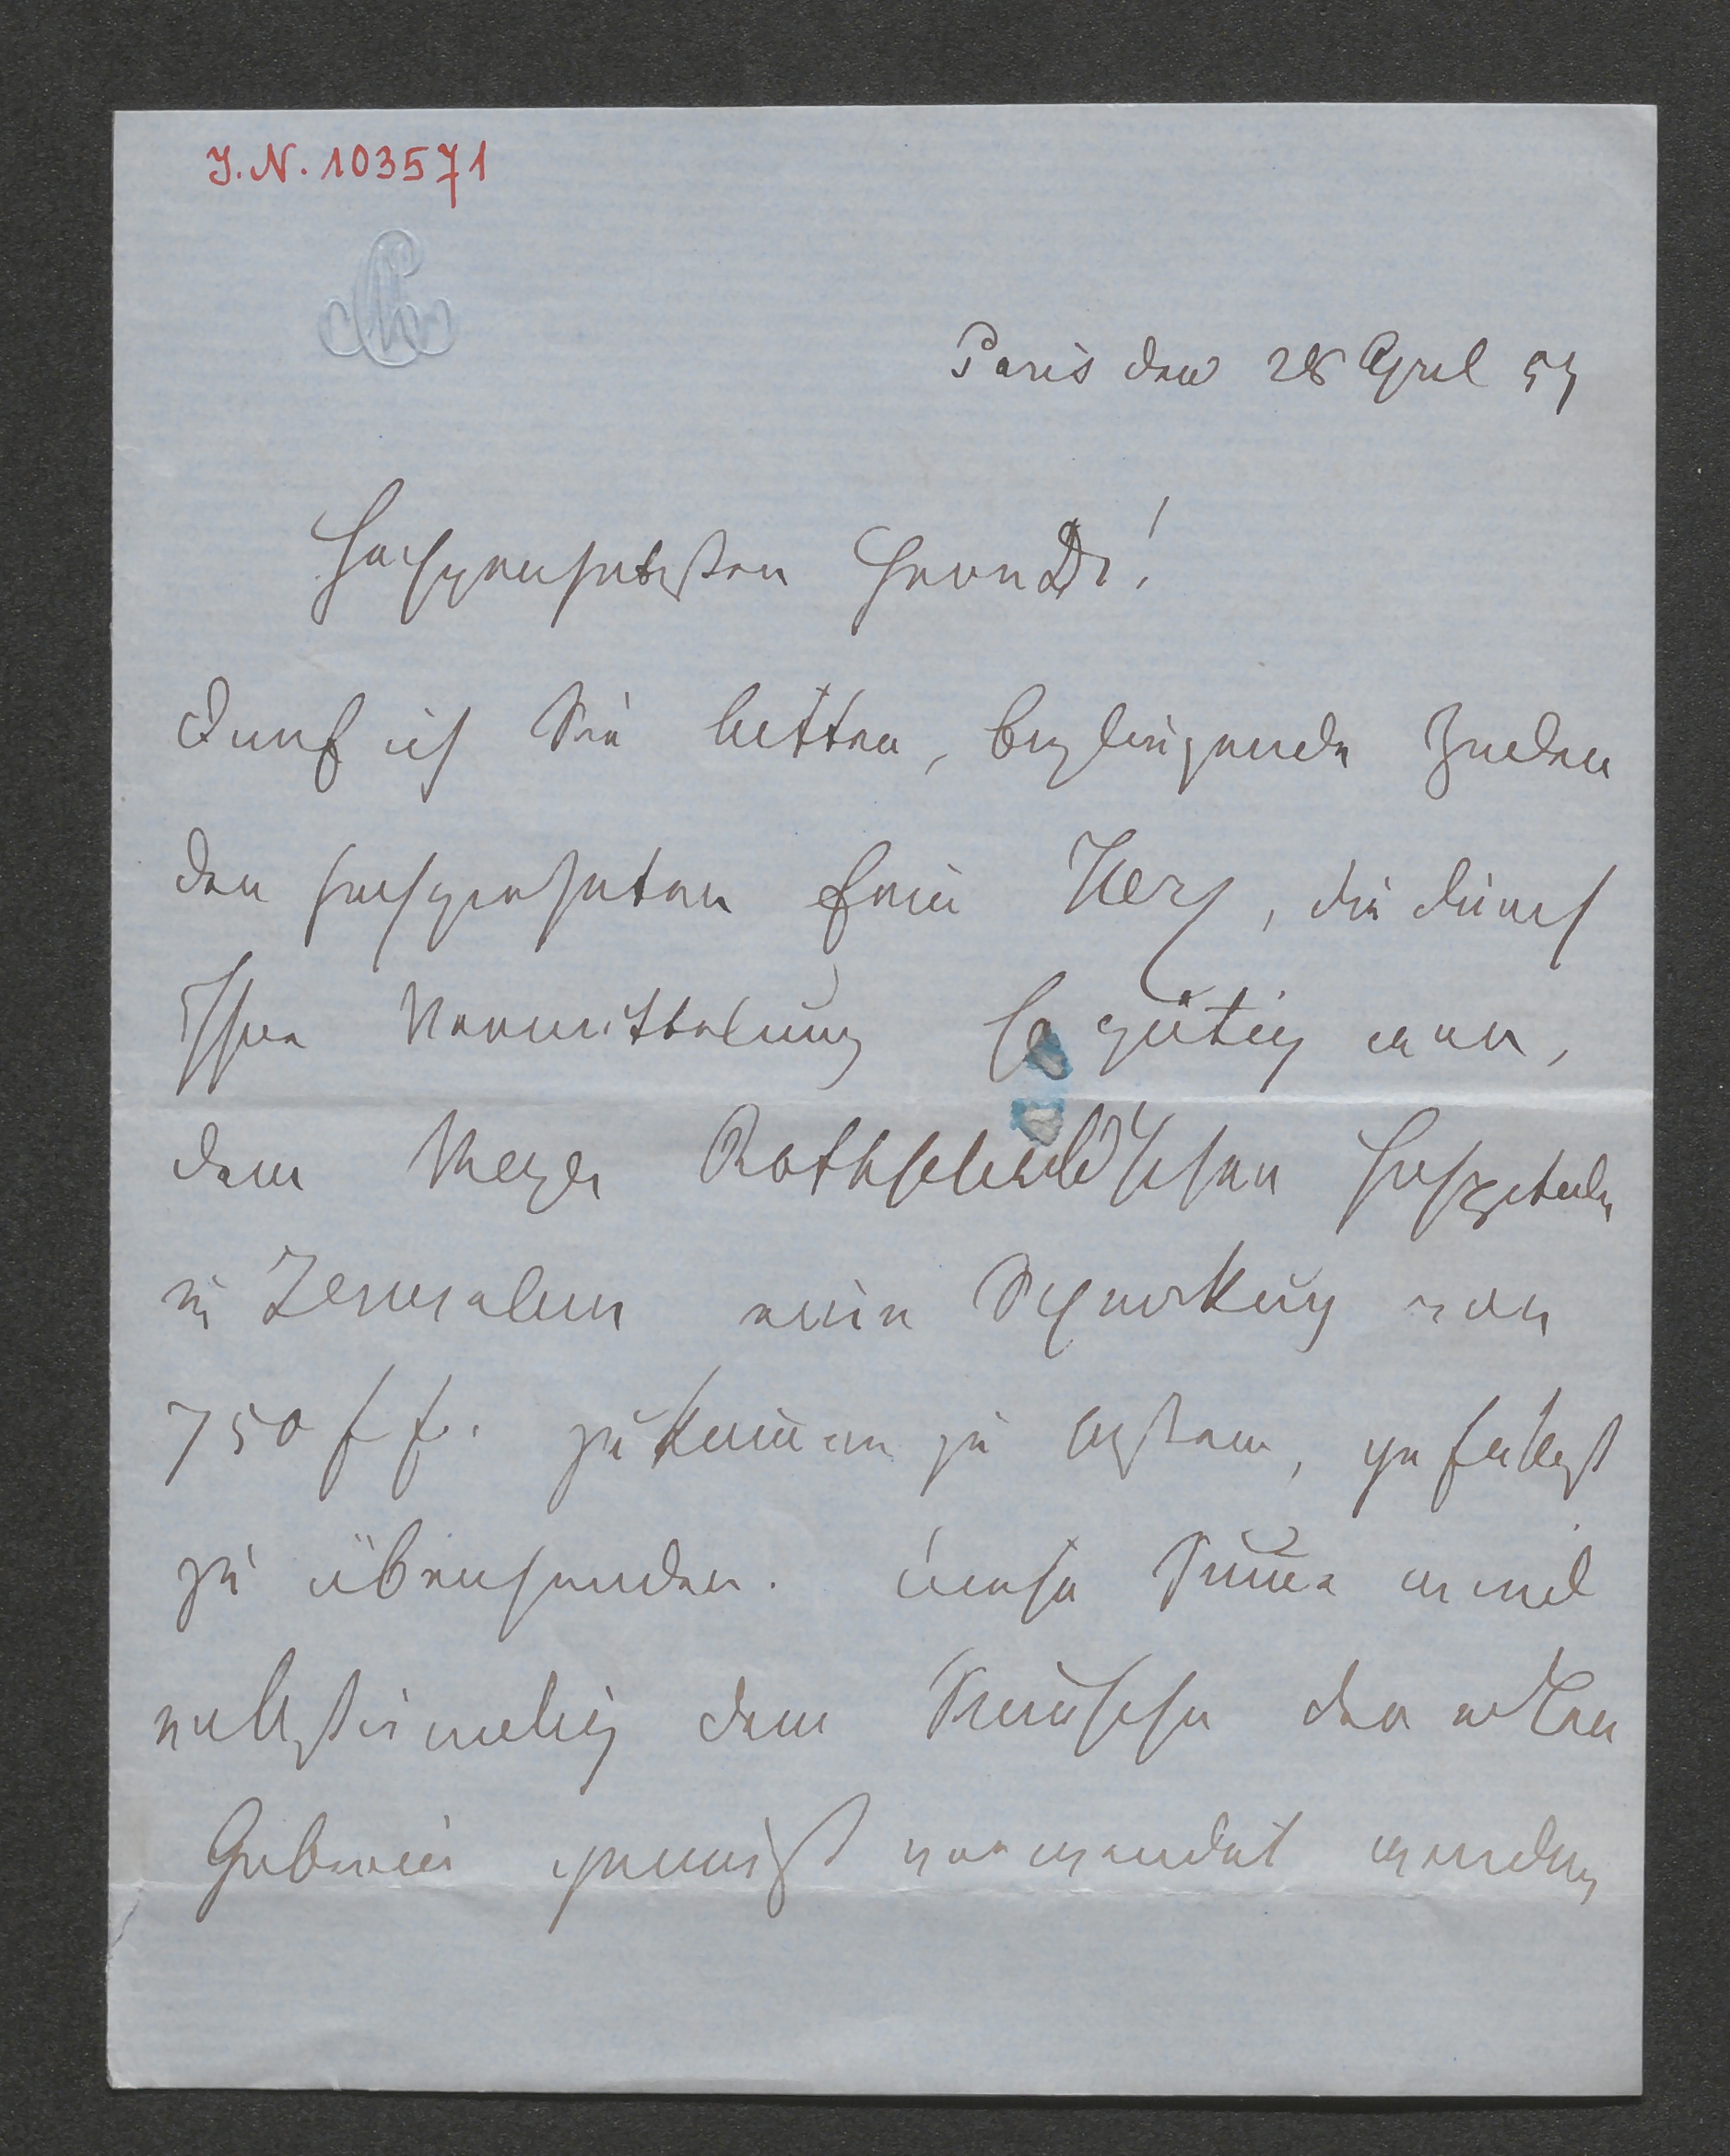 J.N. 103571
Paris den 28 April 57
Hochgeehrtester Herr Dr!
Darf ich Sie bitten, beyliegende Zeilen
der hochgeehrten Frau Herz, die durch
Ihre Vermittelung so gütig war,
dem Meyer Rothschild'schen Hospitale
in Jerusalem eine Schenkung von
750 ff. zukommen zu lassen, gefälligst
zu übersenden. Diese Summe wird
vollständig dem Wunsche der edlen
Geberin gemäß verwendet werden